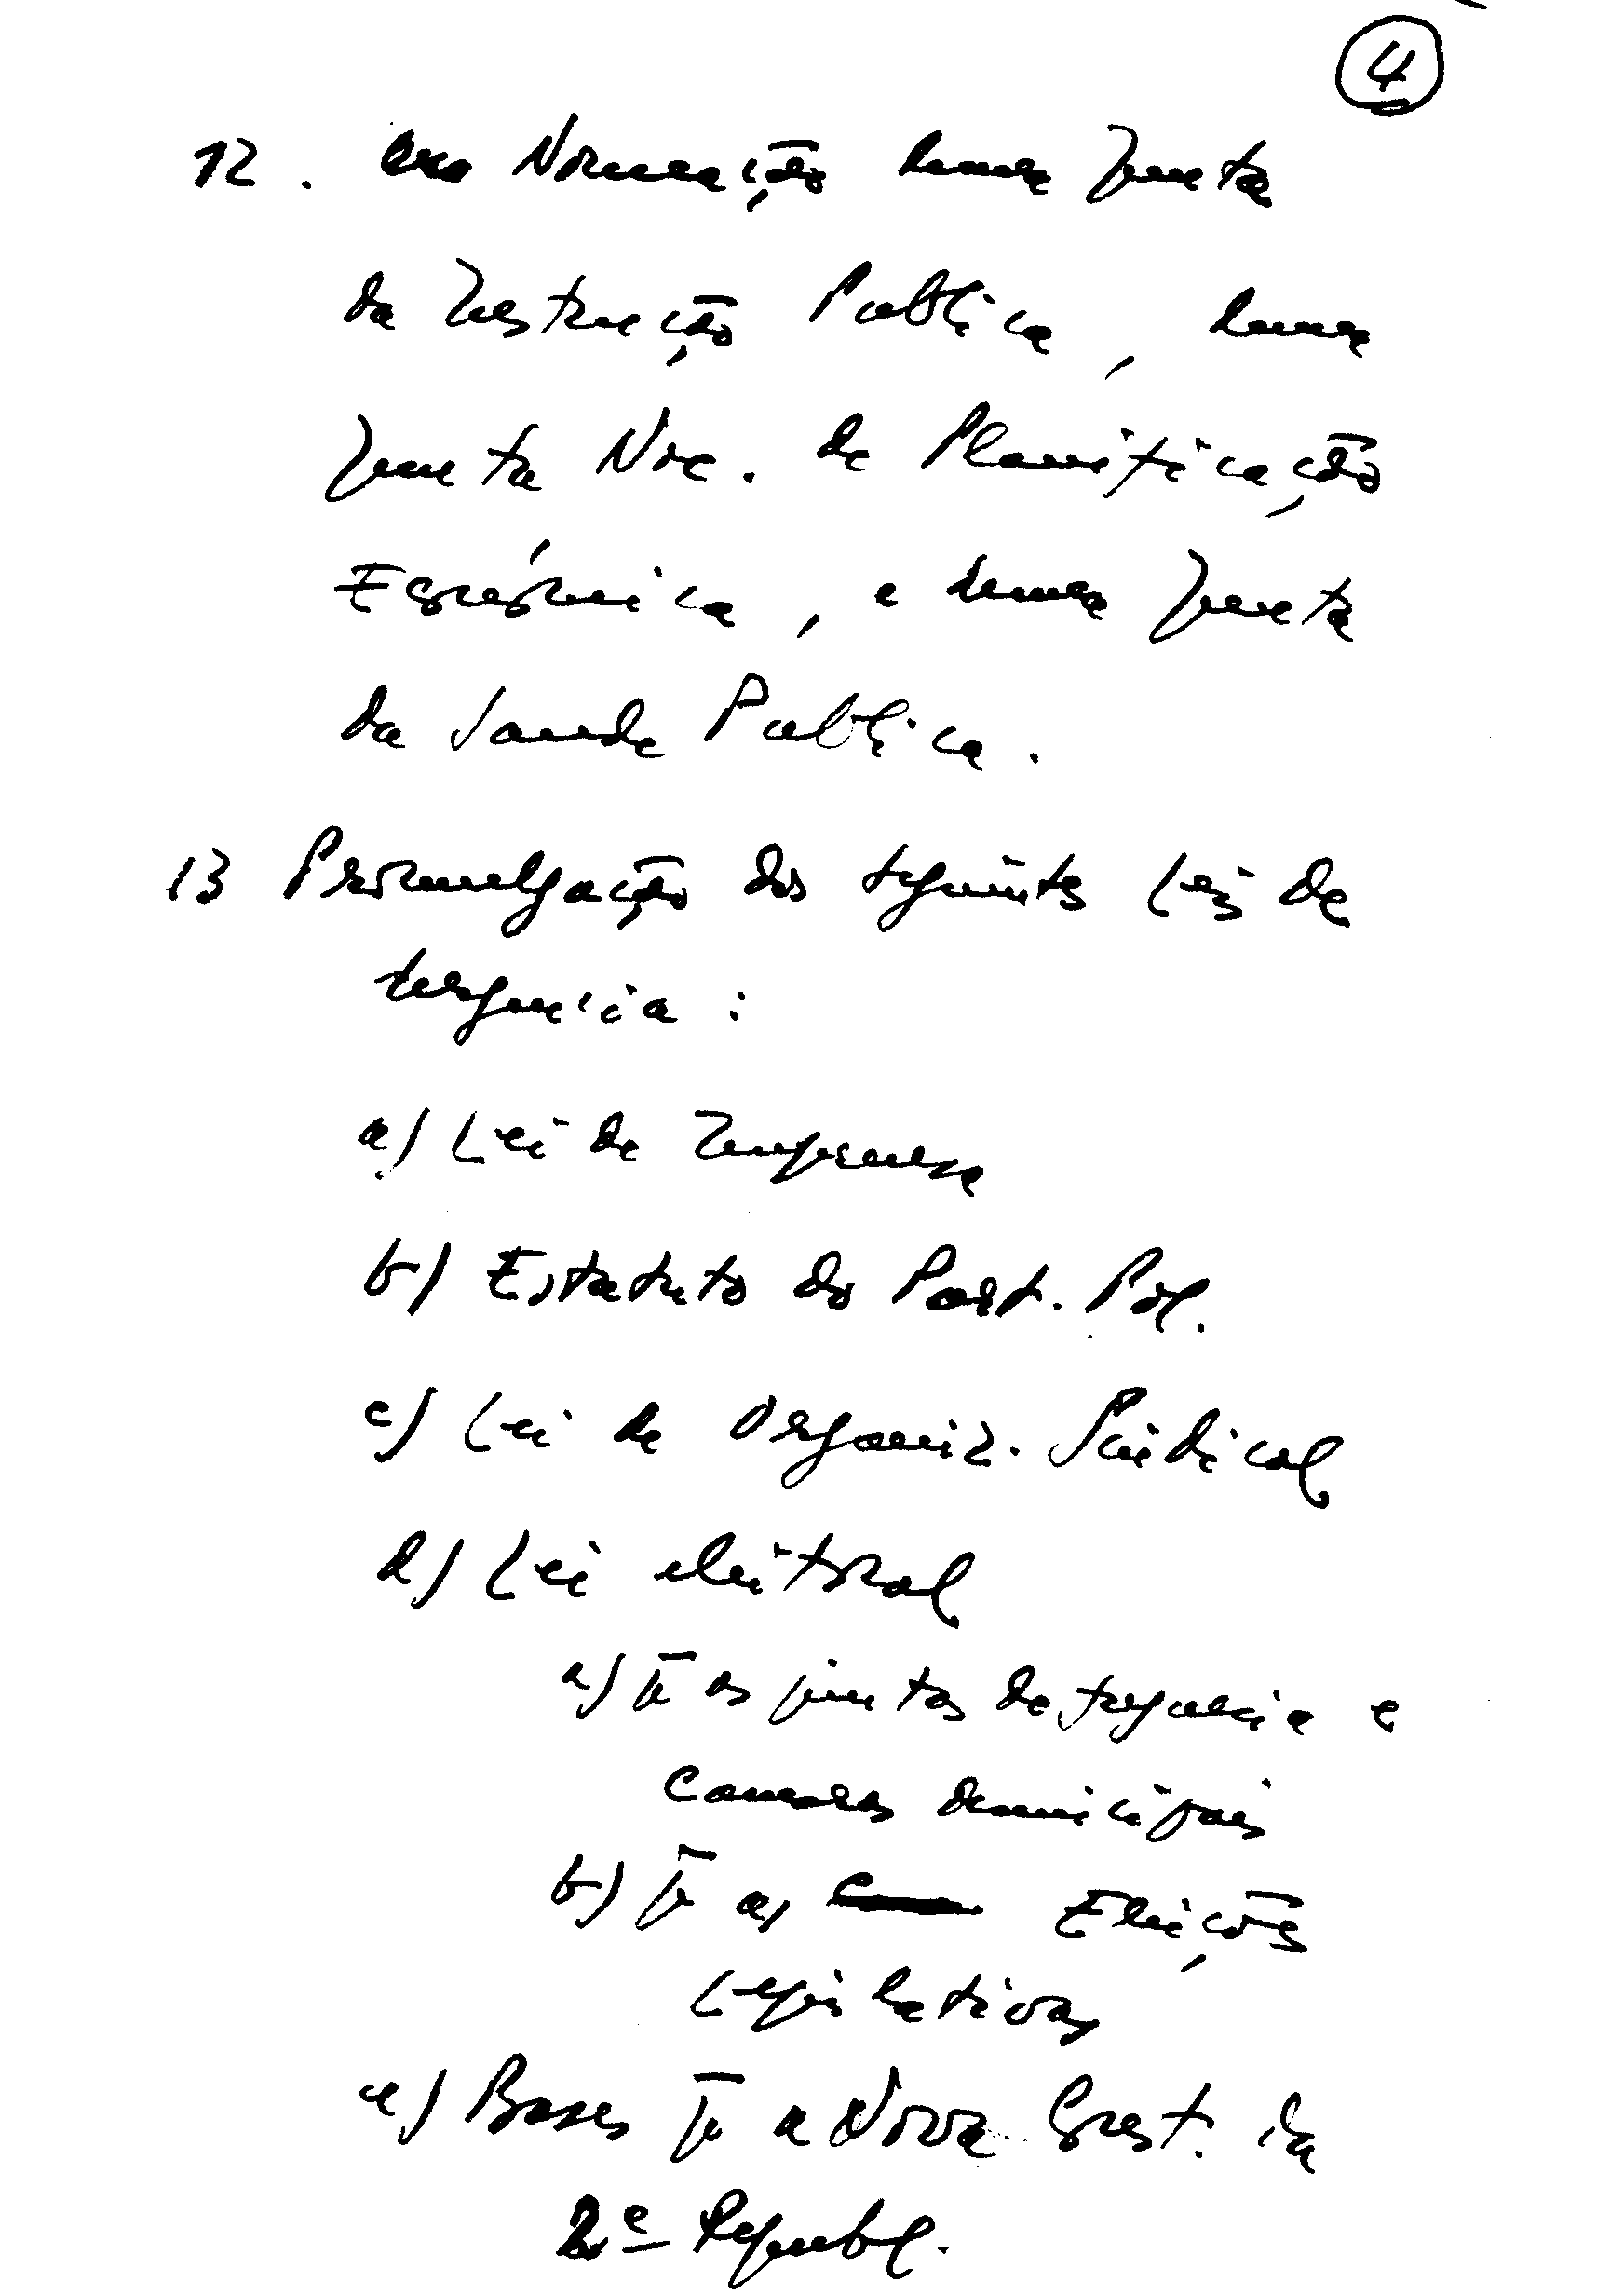 4
12. Nomeação duma Junta
da Instrução Publica, duma
Junta Nac. de Planificação
Económica, e duma Junta
da Saude Publica.
13 Promulgação das seguintes Leis de
urgencia:
a) Lei de Imprensa
b) Estatuto do Part. Pol.
c) Lei de Organiz. Sindical
d) Lei eleitoral
a) pª as juntas de freguesia e
Camaras municipais
b) pª as Eleições
Legislativas
e) Bases pª a Nova Const. da
2ª Republ.